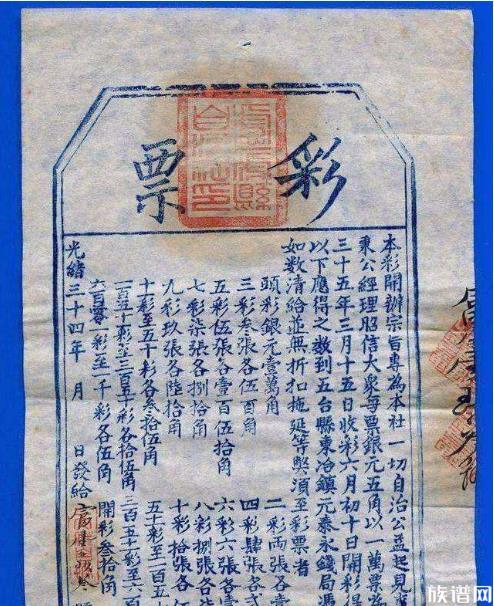 彩票
本彩開辦宗旨專為本社一切自治公益起見
東公經理昭信大衆每票銀元五角以一萬票
三十五年三月十五日收彩六月初十日開彩得
以下應得之數到五台縣東冶鎮元泰永錢局憑
如數清給並無折扣拖延等弊須至彩票者
頭彩銀元壹萬角
二彩両張各壹
三彩叁張各伍百角
四彩肆張各弍
五彩伍張各壹百伍拾角
六彩六張各壹
七彩柒張各捌拾角
八彩捌張各
九彩玖張各陸拾角
十彩拾張各
十彩至五十彩各叁拾伍角
五十彩至一百五十
一百五十彩至三百五十彩各拾伍角
三百五十彩至六百
六百零一彩至一千彩各伍角
開彩叁拾角
光緒三十四年 月 日發給
族谱网